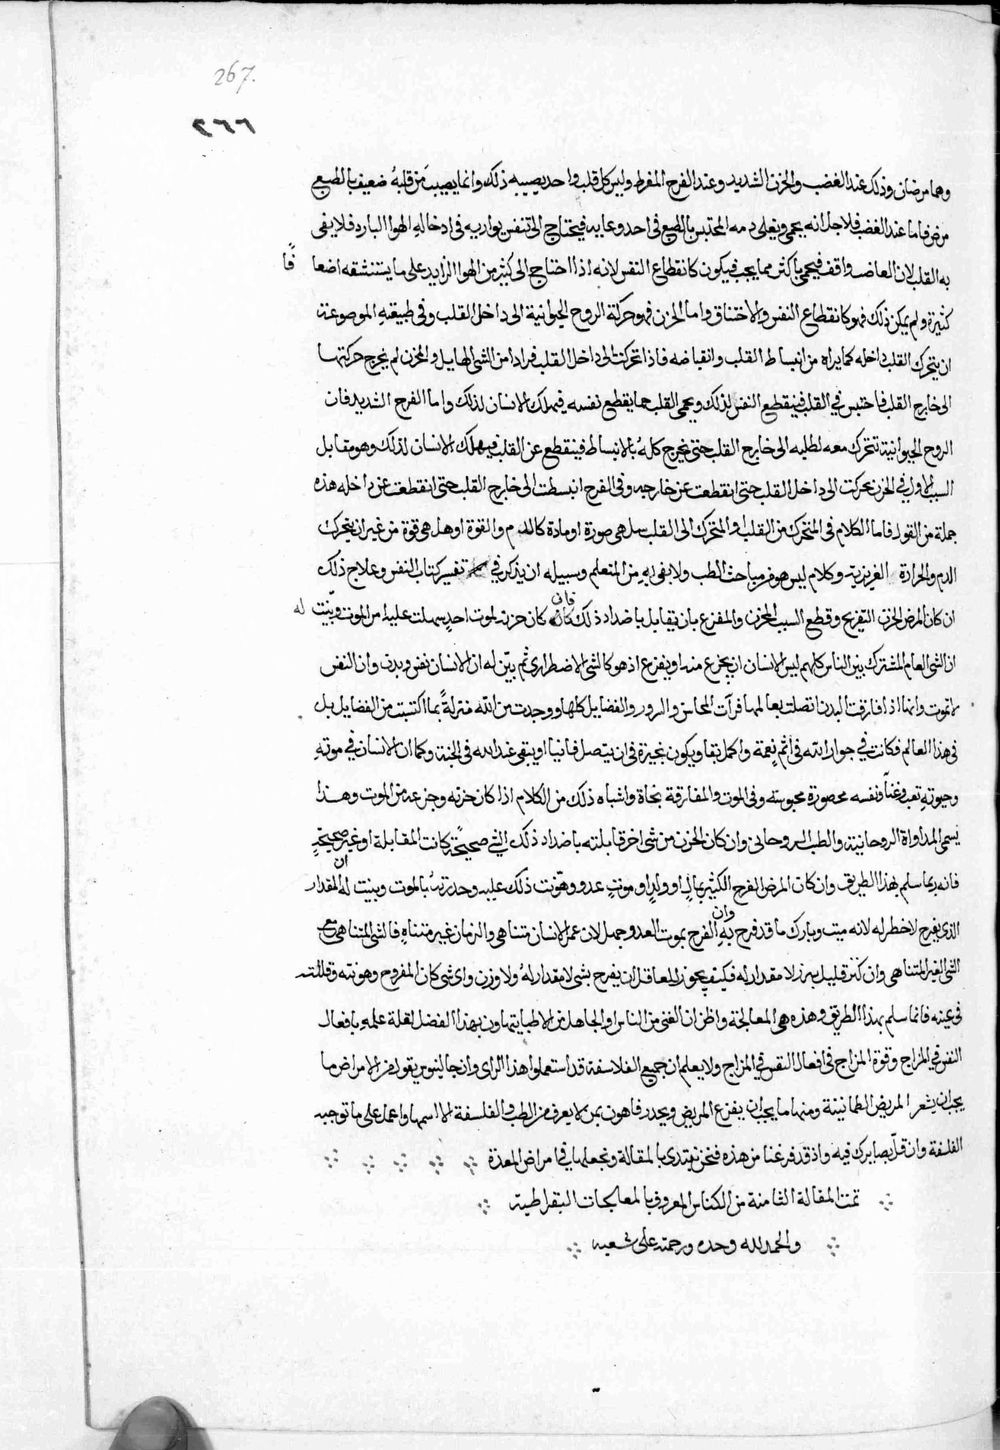 267.
٢٦٦
وهما مرضان وذلك عند الغضب والحزن الشديد وعند الفرح المفرط وليس كل قلب واحد يصيبه ذلك وانما يصيب من قلبه ضعيف بالطبع
مرض فاما عند الغضب فلاجل انه يحمى ويغلى دمه المحتبس بالطبع في احد وعايه فيحتاج الى تنفس يوازيه في ادخاله الهوا البارد فلا يفى
به القلب لان الغاضب واقف فيحمى باكثر مما يجب فيكون كانقطاع النفس لانه اذا احتاج الى كثير من الهوا الزايد على ما يستنشقه اضعا فًا
كثيرة ولم يمكن ذلك فهو كانقطاع النفس والاختناق واما الحزن فهو حركة الروح الحيوانية الى داخل القلب وفي طبيعته الموضوعة
ان يتحرك القلب داخله كما يراه من انبساط القلب وانقباضه فاذا تحركت الى داخل القلب فرارا من الشى الهايل والمحزن لم يخرج حركتها
الى خارج القلب فاحتبس في القلب فينقطع النفس لذلك ويحمى القلب حما يقطع نفسه فيهلك الانسان لذلك واما الفرح الشديد فان
الروح الحيوانية تتحرك معه لطلبه الى خارج القلب حتى يخرج كله بالانبساط فينقطع عن القلب فيهلك الانسان لذلك وهو مقابل
السبب الاول في الحزن تحركت الى داخل القلب حتى انقطعت عن خارجه وفي الفرح انبسطت الى خارج القلب حتى انقطعت عن داخله هذه
جملة من القول فاما الكلام في المتحرك من القلب او المتحرك الى القلب هل هي صورة او مادة كالدم والقوة او هل هي قوة من غير ان يتحرك
الدم والحرارة الغريزية وكلام ليس هو من مباحث الطب ولا يفى به من المتعلم وسبيله ان يذكر في تفسير كتاب النفس وعلاج ذلك
ان كان المرض الحزن التفريح وقطع السبب المحزن والمفزع بان يقابل باضداد ذلك فان كان حزنه لموت احد سهلت عليه امر الموت وبينت له
ان الشى العام المشترك بين الناس كلهم ليس للانسان ان يجزع منه او يفزع اذ هو كالشى الاضطرارى ثم بين له ان الانسان نفس وبدن وان النفس
لا تموت وانها اذا فارقت البدن اتصلت بعالمها فرأت المحاسن والسرور والفضايل كلها ووجدت من الله منزلةً بما اكتسبت من الفضايل بل
في هذا العالم فكانت في جوار الله في اتم نعمة واكمل بقا ويكون بخيرة في ان يتصل فانيا او يبقى عند الله في الجنة وكما ان الانسان في موته
وحيوته تعب وغماً ونفسه محصورة محبوسة وفي الموت والمفارقة نجاة واشباه ذلك من الكلام اذا كان حزنه وجزعه من الموت وهذا
يسمى المداواة الروحانية والطب الروحانى وان كان الحزن من شى اخر قابلته باضداد ذلك الشى صحيحة كانت المقابلة او غير صحيحة
فانه ربما سلم بهذا الطريق وان كان المرض الفرح الكثير بمال او ولد او موت عدو وهونت ذلك عليه وحذرته بالموت وبينت له ان المقدار
الذى يفرح لاخطر له لانه ميت وبارك ما قد فرح به وان الفرح بموت العدو جهل لان عمر الانسان متناهى والزمان غير متناه فالشى المتناهى مع
الشى الغير المتناهى وان كثر قليل نزر لا مقدار له فكيف يجوز للعاقل ان يفرح بشى لا مقدار له ولا وزن واى شى كان المفروح وهونته وقللته
في عينه فانما سلم بهذا الطريق وهذه هي المعالجة واظن ان الغنى من الناس او الجاهل من الاطبا يتهاون بهذا الفضل لقلة علمه بافعال
النفس في المزاج وقوة المزاج في افعال النفس في المزاج ولا يعلم ان جميع الفلاسفة قد استعملوا هذا الراى وان جالينوس يقول من الامراض ما
يجب ان يشعر المريض الطمانينة ومنها ما يجب ان يفزع المريض ويحذر فاهون بمن لا يعرف من الطب والفلسفة الا اسمها واعمل على ما توجبه
الفلسفة وان قل بصايرك فيه واذ قد فرغنا من هذه فنحن نبتدى بالمقالة ونجعلها في امراض المعدة
تمت المقالة الثامنة من الكناس المعروف بالمعالجات البقراطية
والحمد لله وحده ورحمته على شعبه